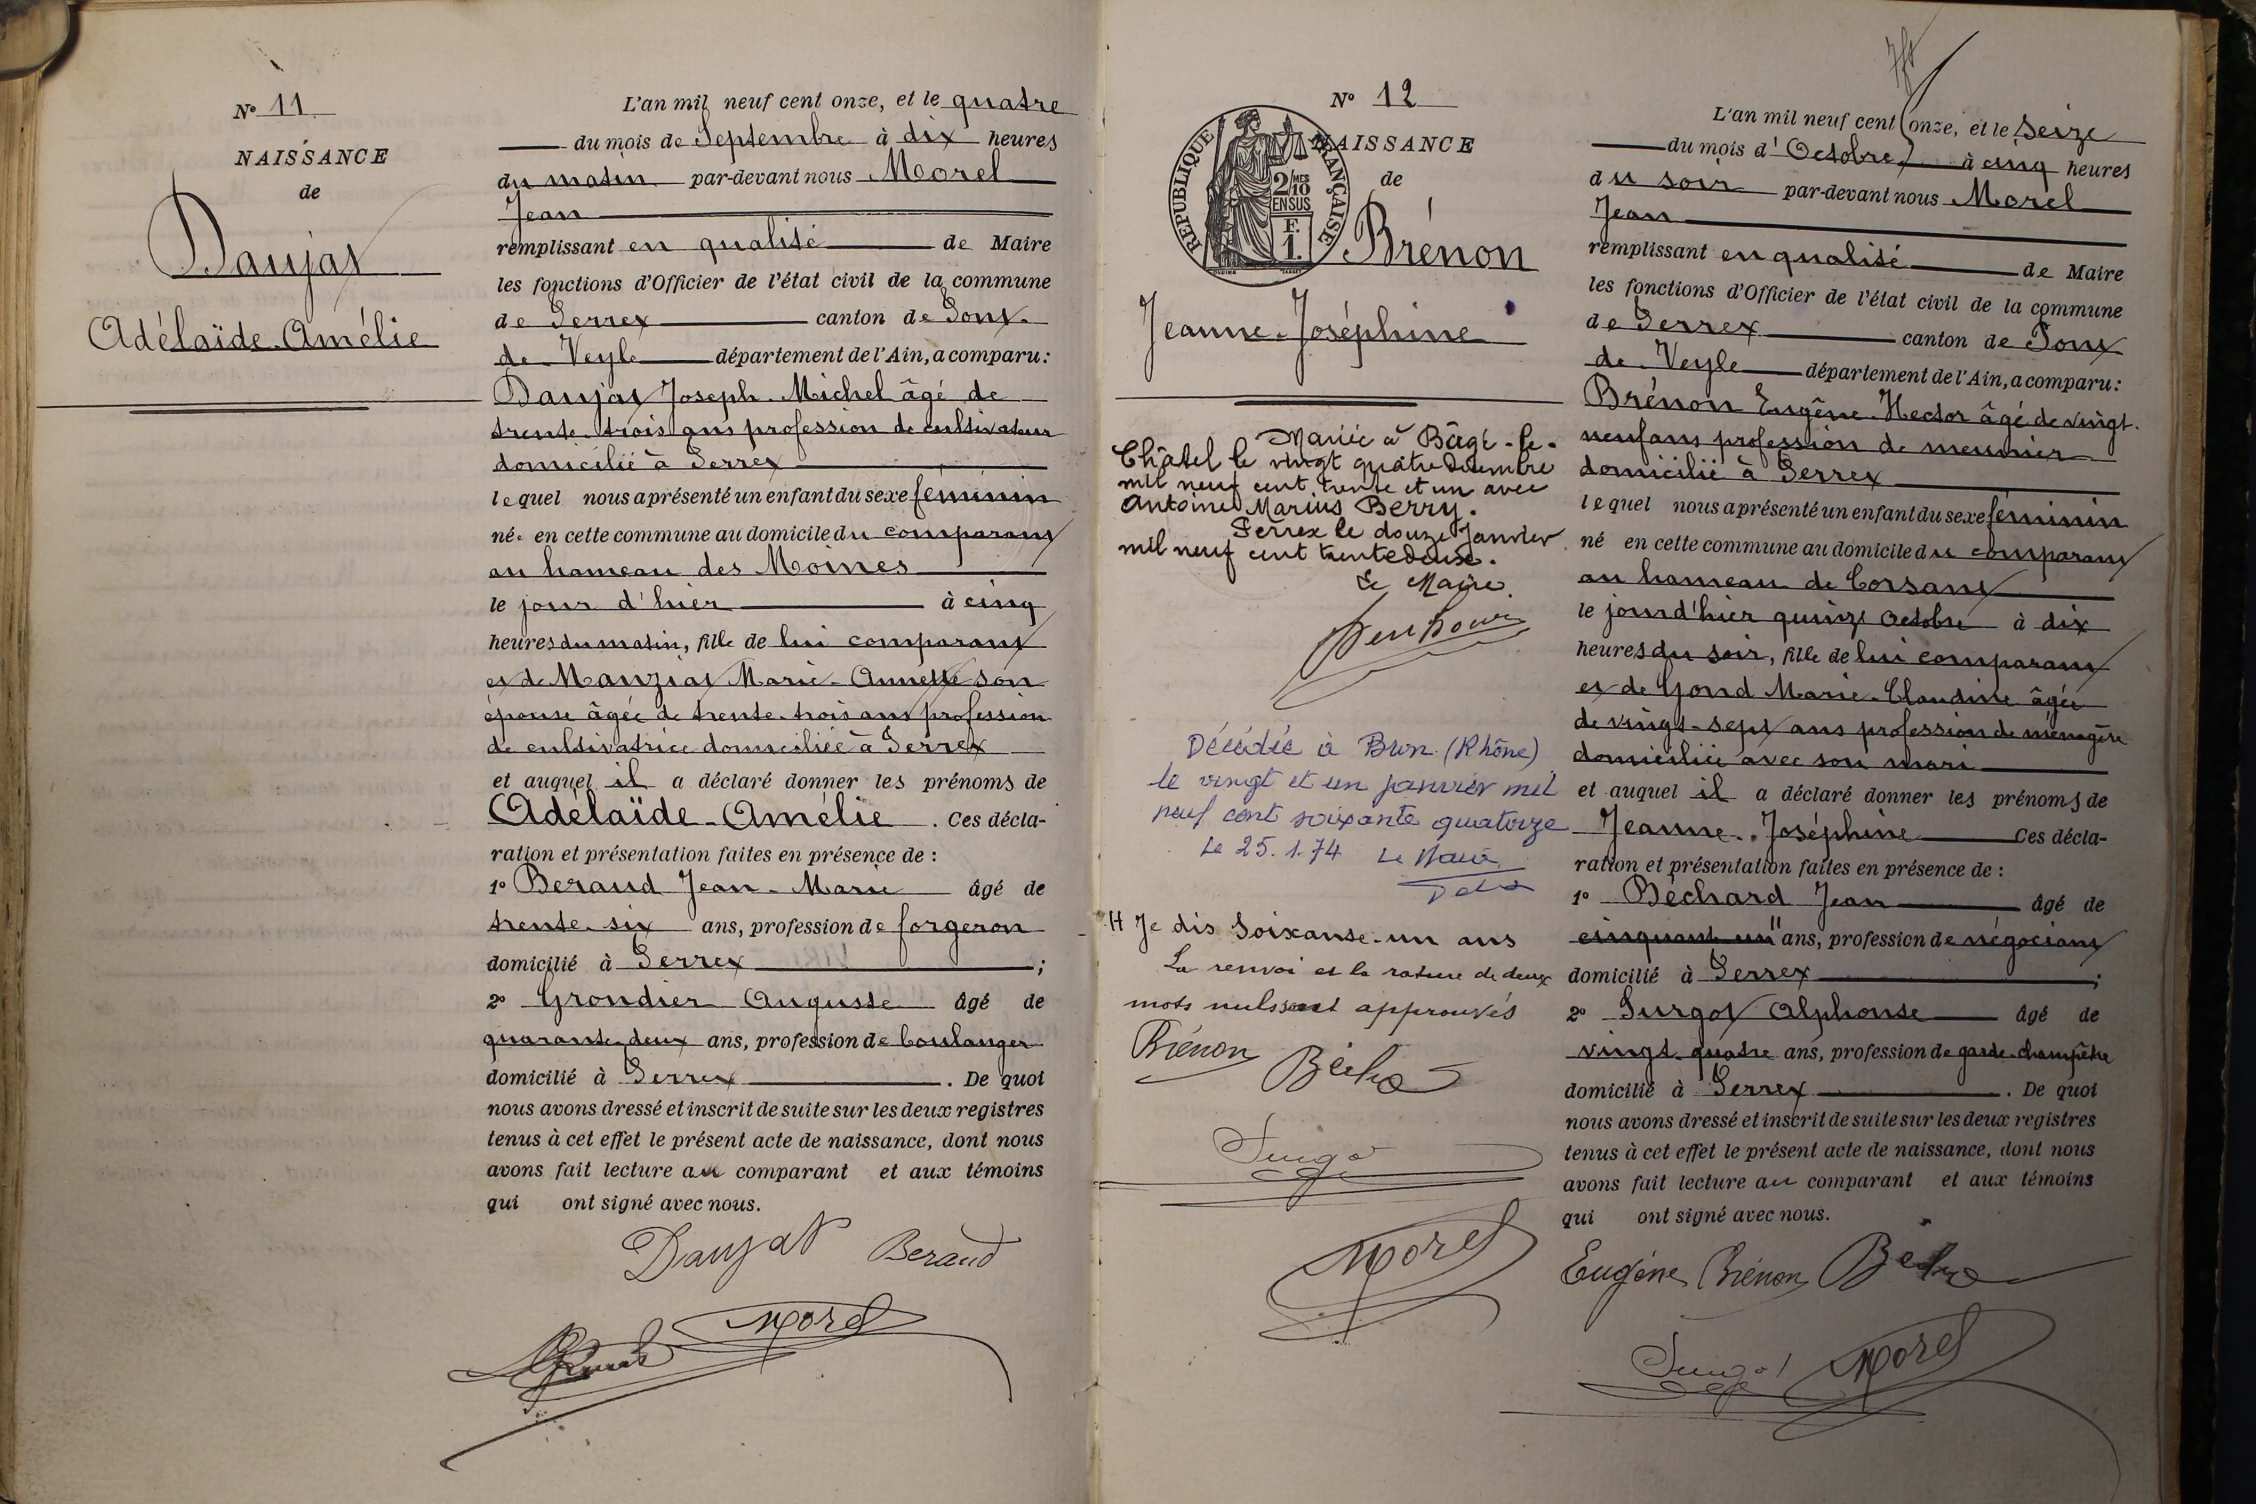 N° 11
NAISSANCE
de
Daujat
Adélaïde-Amélie
L'an mil neuf cent onze, et le quatre
du mois de Septembre à dix heures
du matin par-devant nous Morel
Jean
remplissant en qualité de Maire
les fonctions d'Officier de l'état civil de la commune
de Perrex canton de Pont-
de-Veyle département de l'Ain, a comparu :
Daujat Joseph-Michel âgé de
trente-trois ans profession de cultivateur
domicilié à Perrex
lequel nous a présenté un enfant du sexe féminin
né en cette commune au domicile du comparant
au hameau des Moines
le jour d'hier à cinq
heures du matin, fille de lui comparant
et de Manziat Marie-Annette son
épouse âgée de trente-trois ans profession
de cultivatrice domiciliée à Perrex
et auquel il a déclaré donner les prénoms de
Adélaïde-Amélie. Ces décla-
ration et présentation faites en présence de :
1° Beraud Jean-Marie âgé de
trente-six ans, profession de forgeron
domicilié à Perrex ;
2° Grondier Auguste âgé de
quarante-deux ans, profession de boulanger
domicilié à Perrex. De quoi
nous avons dressé et inscrit de suite sur les deux registres
tenus à cet effet le présent acte de naissance, dont nous
avons fait lecture au comparant et aux témoins
qui ont signé avec nous.
Daujat Beraud
Morel
N° 12
NAISSANCE
de
RÉPUBLIQUE FRANÇAISE
2/10 MES
EN SUS
F.
1.
Brénon
Jeanne-Joséphine
Mariée à Bâgé-le-
Châtel le vingt quatre Décembre
mil neuf cent trente et un avec
Antoine Marius Berry.
Perrex le douze Janvier
mil neuf cent trente deux.
Le Maire.
Décédée à Bron (Rhône)
le vingt et un janvier mil
neuf cent soixante quatorze
Le 25.1.74 Le Maire
H Je dis Soixante-un ans
Le renvoi et la rature de deux
mots nuls sont approuvés
Brénon Bécha
Surgot
Morel
L'an mil neuf cent onze, et le Seize
du mois d'Octobre à cinq heures
du soir par-devant nous Morel
Jean
remplissant en qualité de Maire
les fonctions d'Officier de l'état civil de la commune
de Perrex canton de Pont
de-Veyle département de l'Ain, a comparu :
Brénon Eugène-Hector âgé de vingt-
neuf ans profession de meunier
domicilié à Perrex
lequel nous a présenté un enfant du sexe féminin
né en cette commune au domicile du comparant
au hameau de Corsant
le jour d'hier quinze octobre à dix
heures du soir, fille de lui comparant
et de Gond Marie-Claudine âgée
de vingt-sept ans profession de ménagère
domiciliée avec son mari
et auquel il a déclaré donner les prénoms de
Jeanne-Joséphine Ces décla-
ration et présentation faites en présence de :
1° Béchard Jean âgé de
cinquante un H ans, profession de négociant
domicilié à Perrex ;
2° Surgot Alphonse âgé de
vingt-quatre ans, profession de garde-champêtre
domicilié à Perrex. De quoi
nous avons dressé et inscrit de suite sur les deux registres
tenus à cet effet le présent acte de naissance, dont nous
avons fait lecture au comparant et aux témoins
qui ont signé avec nous.
Eugène Brénon Bécha
Surgot Morel